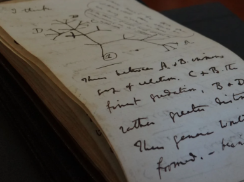 I think
D
B
A
①
Thus between A & B immense
gap of relation. C & B. the
finest gradation, B & D
rather greater distinction
Thus genera would be
formed. —